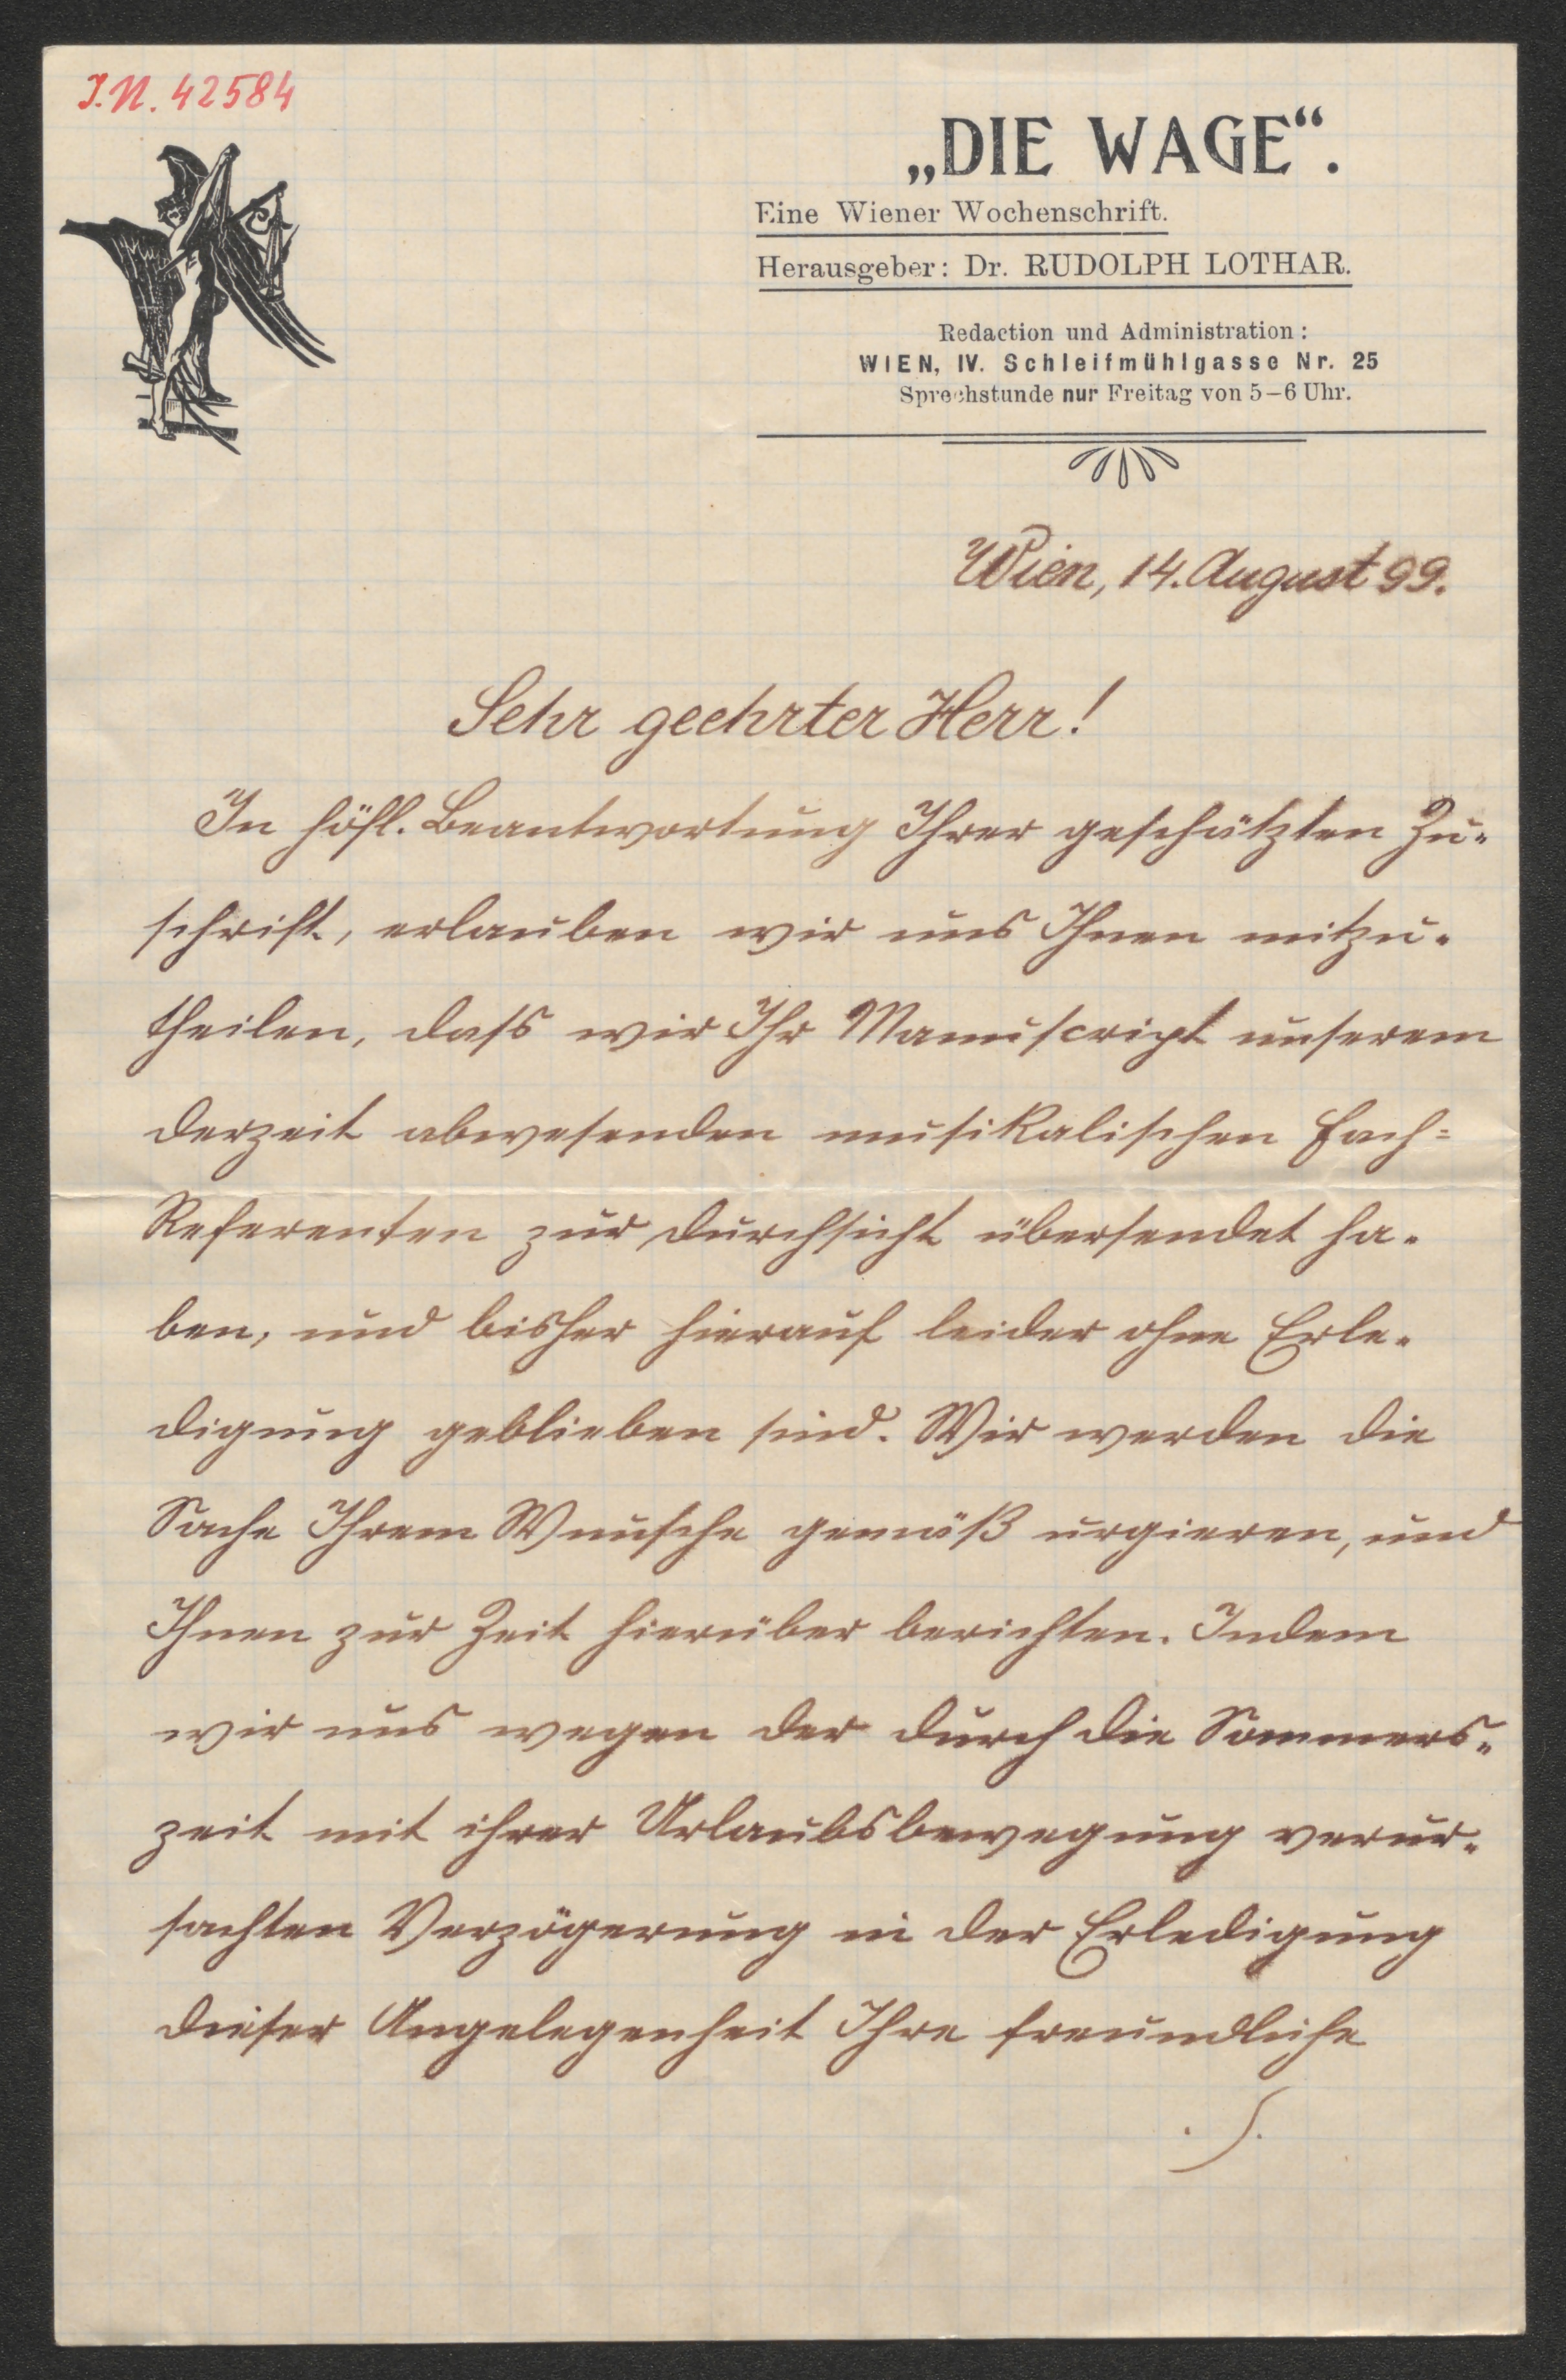 I.N. 42584
„DIE WAGE“.
Eine Wiener Wochenschrift.
Herausgeber: Dr. RUDOLPH LOTHAR.
Redaction und Administration:
WIEN, IV. Schleifmühlgasse Nr. 25
Sprechstunde nur Freitag von 5–6 Uhr.
Wien, 14. August 99.
Sehr geehrter Herr!
In höfl. Beantwortung Ihrer geschätzten Zu-
schrift, erlauben wir uns Ihnen mitzu-
theilen, dass wir Ihr Manuscript unserem
derzeit abwesenden musikalischen Fach-
Referenten zur Durchsicht übersendet ha-
ben, und bisher hierauf leider ohne Erle-
digung geblieben sind. Wir werden die
Sache Ihrem Wunsche gemäß urgieren, und
Ihnen zur Zeit hierüber berichten. Indem
wir uns wegen der durch die Sommers-
zeit mit ihrer Urlaubsbewegung verur-
sachten Verzögerung in der Erledigung
dieser Angelegenheit Ihre freundliche
./.